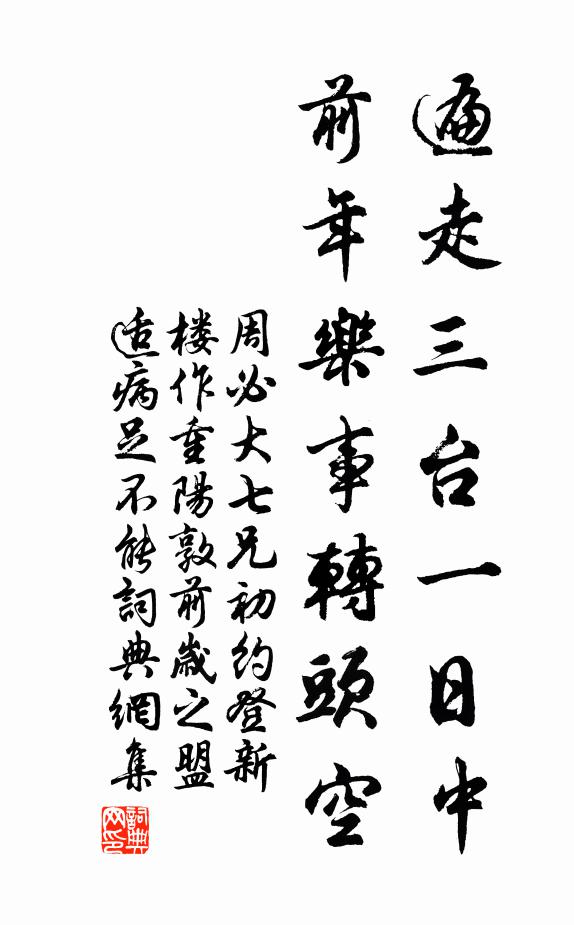 遍走三台一日中
前年樂事轉頭空
周必大七兄初約登新
楼作重陽敦前歲之盟
适病足不能詞典網集
詞典網印